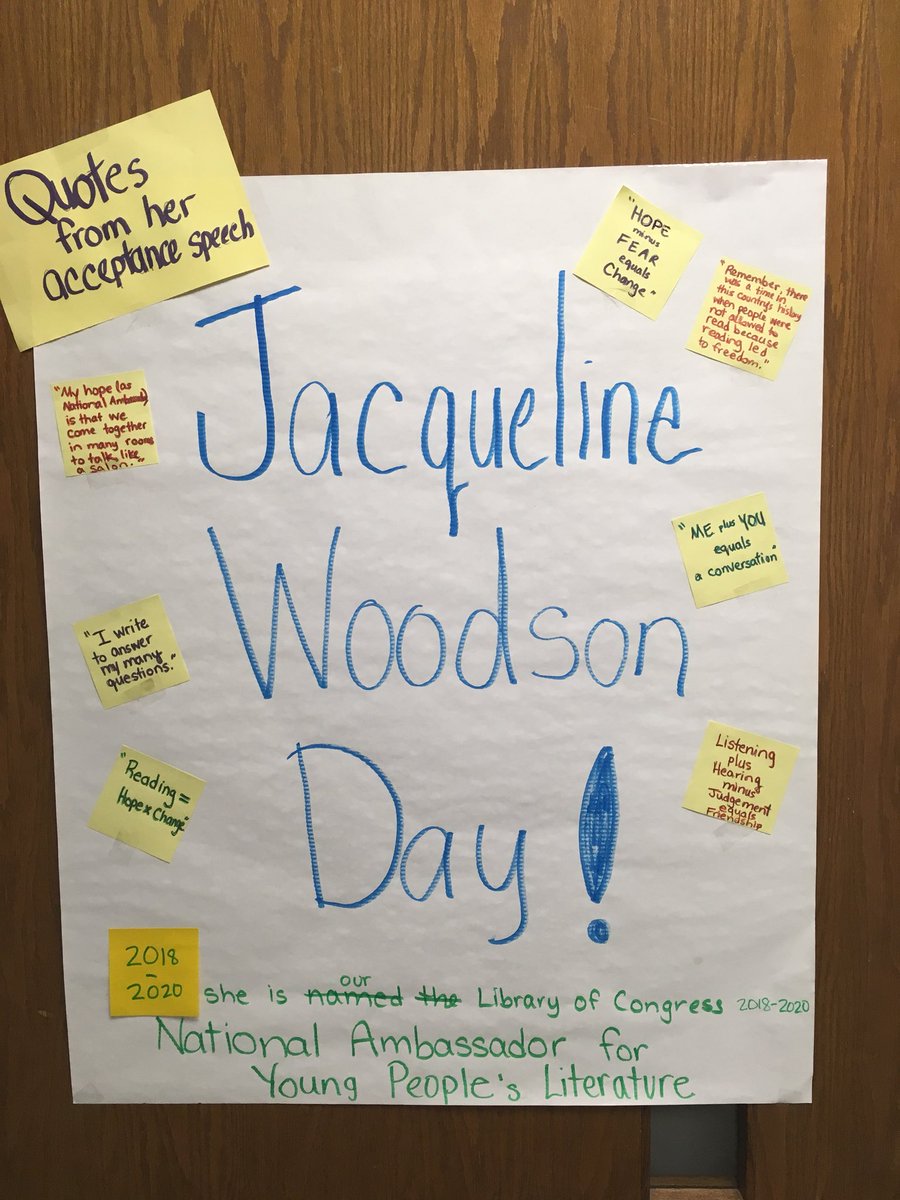 Quotes
from her
acceptance speech
"HOPE
minus
FEAR
equals
Change"
"Remember, there
was a time in
this country's history
when people were
not allowed to
read because
reading led
to freedom."
Jacqueline
"My hope (as
National Ambassador)
is that we
come together
in many rooms
to talk, like
a salon."
"ME plus YOU
equals
a conversation"
Woodson
"I write
to answer
my many
questions."
Listening
plus
Hearing
minus
Judgement
equals
Friendship
"Reading =
Hope x Change"
Day!
2018
-
2020
our
she is named the Library of Congress 2018-2020
National Ambassador for
Young People's Literature